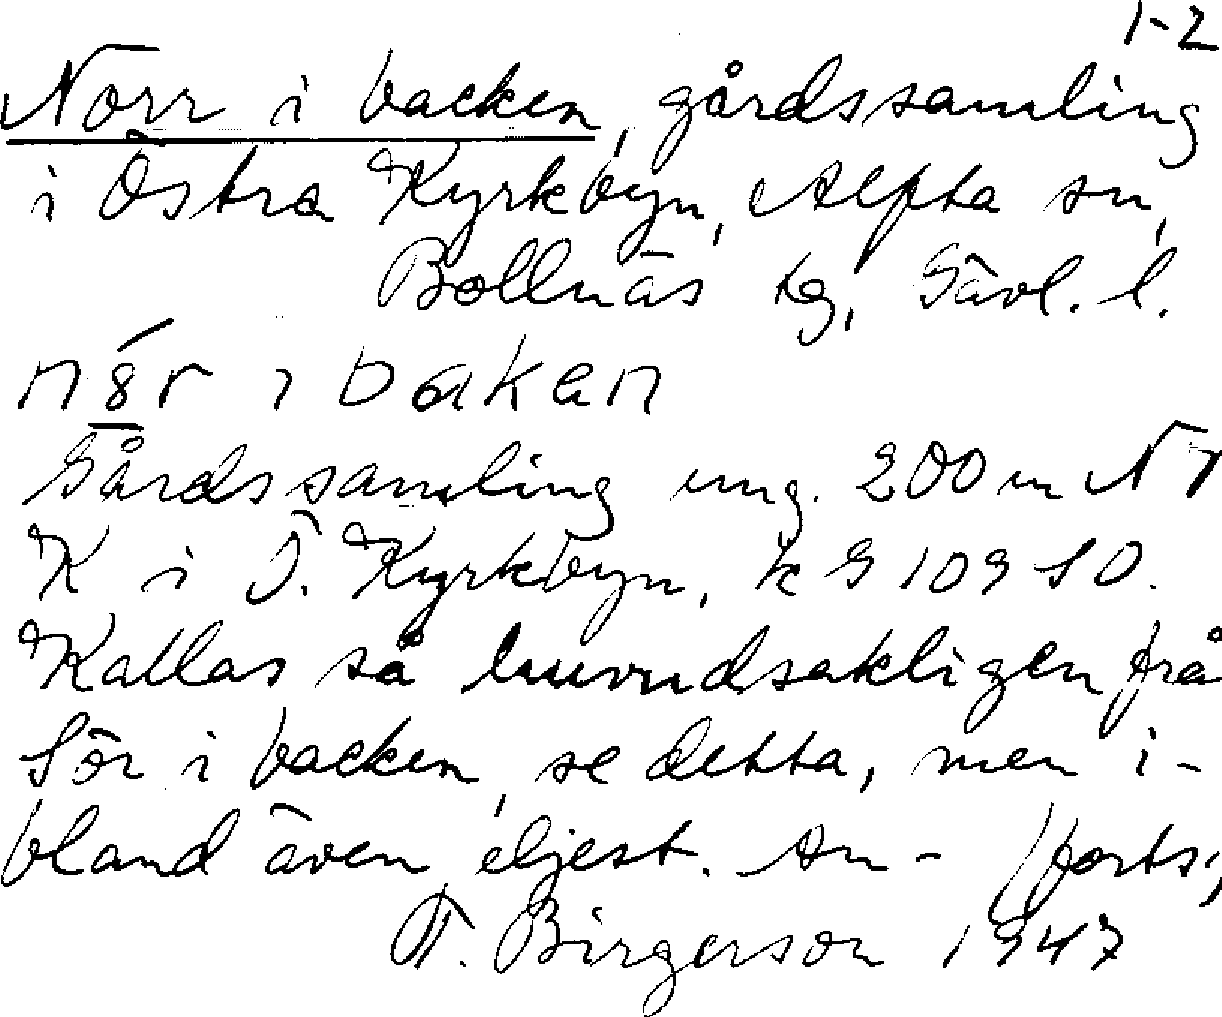 1-2
Norr i backen, gårdssamling
i Östra Kyrkbyn, Alfta sn,
Bollnäs tg, Gävl. l.
i bakan
Gårdssamling ung. 200 m NV
K i Ö. Kyrkbyn, k 9109 SO.
Kallas så huvudsakligen frå
Sör i backen, se detta, men i-
bland även eljest. An- /forts;
T. Birgerson 1947